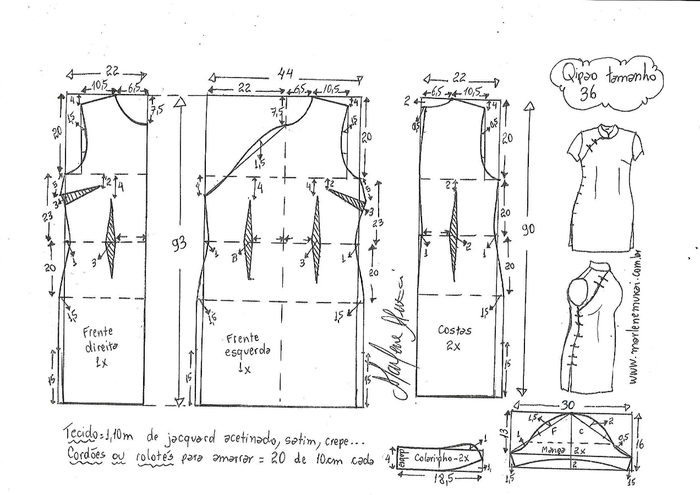 Qipao tamanho
36
22
10,5 6,5
4
7,5
1,5
20
2
4
8
3
23
1
3
20
1,5
Frente
direita
1x
15
93
44
22 6,5 10,5
7,5
4
1,5
1,5
20
4
4
2
8
3
23
3
1
20
1,5
1,5
Frente
esquerda
1x
15
Marlene Mukai
22
6,5 10,5
2
4
0,5
20
2
23
1
2
1
20
1,5
Costas
2x
15
90
www.marlenemukai.com.br
Tecido=1,10m de jacquard acetinado, satim, crepe...
Cordões ou rolotês para amarrar = 20 de 10cm cada
4
Colarinho-2x
1
18,5
30
13
1,5
F
C
2
1
0,5
16
Manga 2x
2
1,5
15